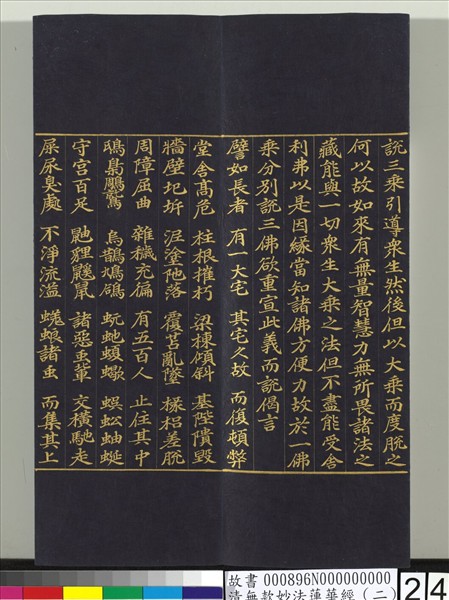 說三乘引導衆生然後但以大乘而度脫之
何以故如來有無量智慧力無所畏諸法之
藏能與一切衆生大乘之法但不盡能受舍
利弗以是因緣當知諸佛方便力故於一佛
乘分別說三佛欲重宣此義而說偈言
譬如長者 有一大宅 其宅久故 而復頓弊
堂舍高危 柱根摧朽 梁棟傾斜 基陛隤毀
牆壁圮坼 泥塗阤落 覆苫亂墜 椽梠差脫
周障屈曲 雜穢充徧 有五百人 止住其中
鴟梟鵰鷲 烏鵲鳩鴿 蚖地蝮蠍 蜈蚣蚰蜒
守宮百足 鼬貍鼷鼠 諸惡䖝輩 交橫馳走
屎尿臭處 不淨流溢 蜣蜋諸䖝 而集其上
故書 000896N000000000
清無款妙法蓮華經(二)
24